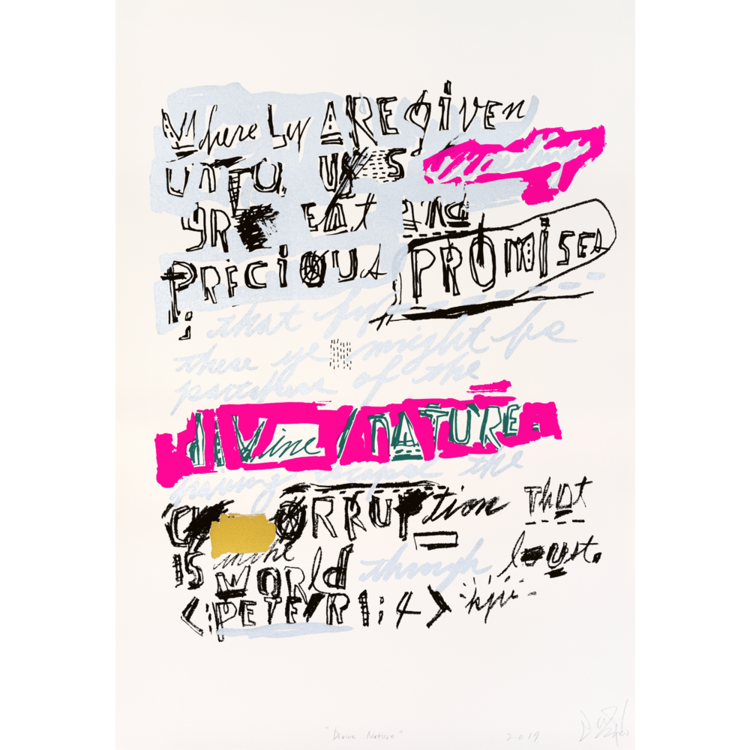 Whereby ARE given
UNTO US
GREAT AND
PRECIOUS PROMISES
; that by
these ye might be
partakers of the
divine / NATURE.
having escaped the
CORRUPtion that
is in the WORLD through lust.
<: PETER 1:4>
"Divine Nature" 2019